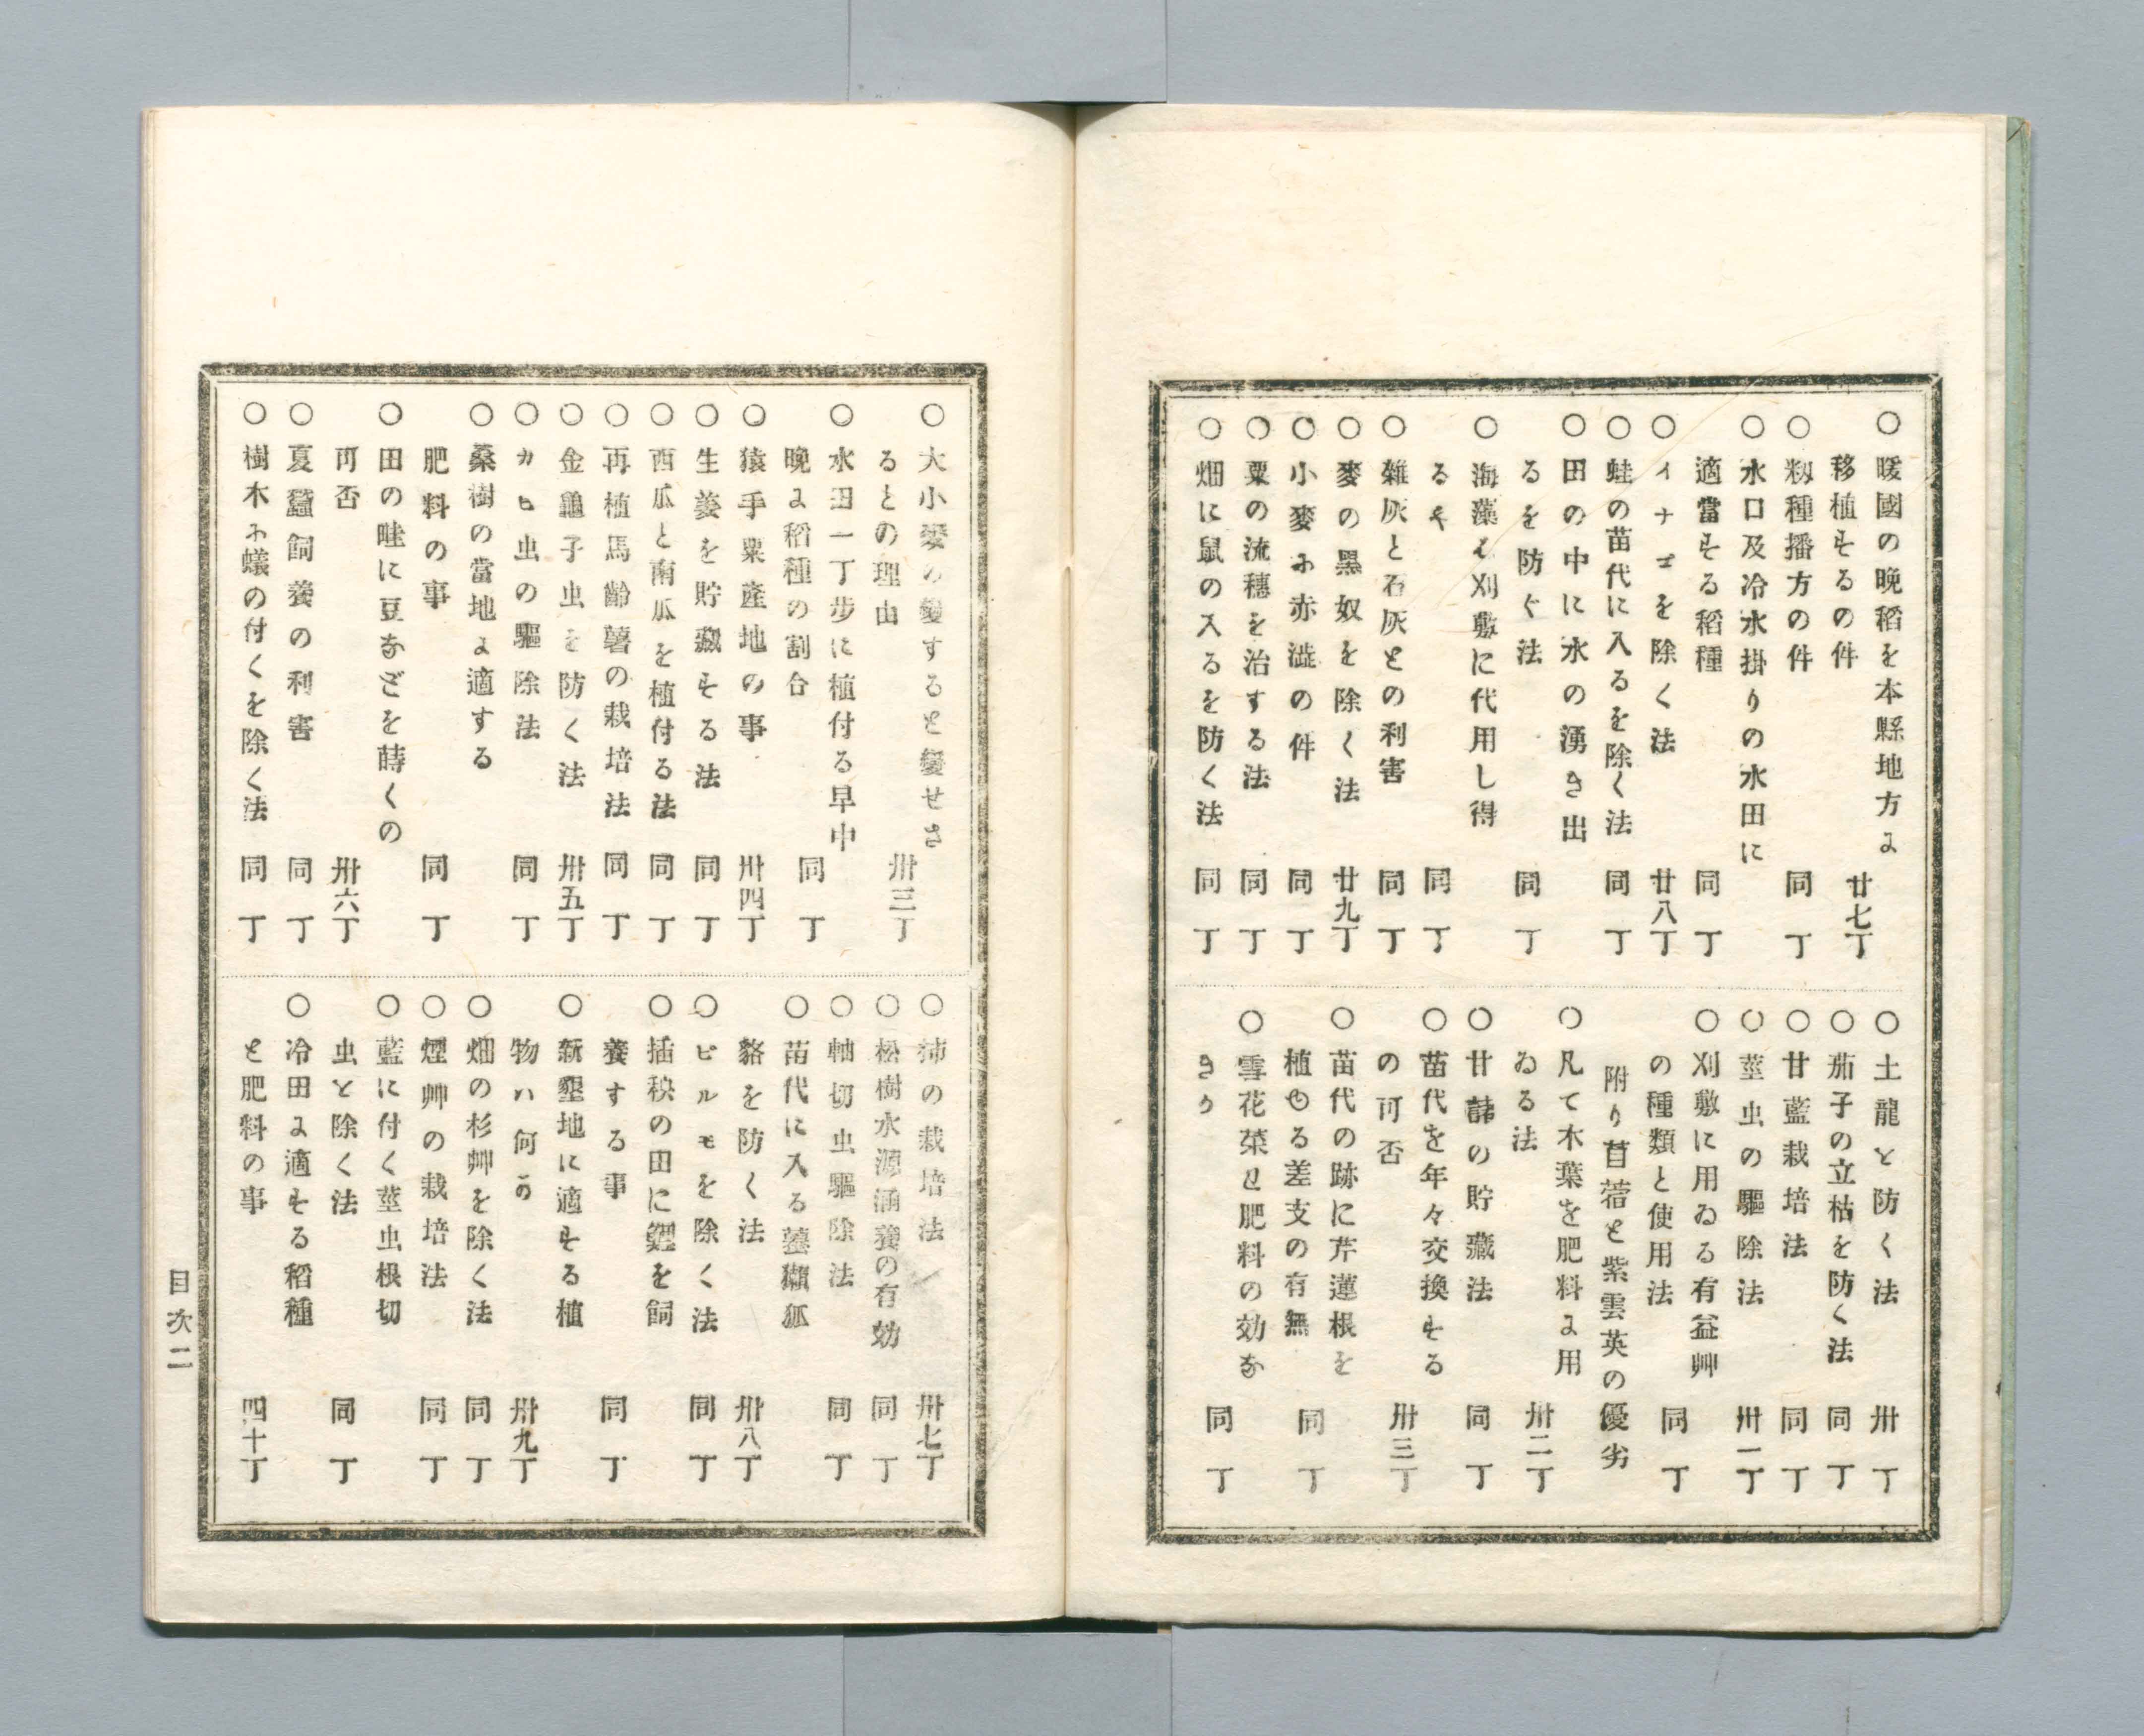 ○暖國の晩稻を本縣地方に
移植するの件　廿七丁
○籾種播方の件　同丁
○水口及冷水掛りの水田に
適當する稻種　同丁
○イナゴを除く法　廿八丁
○蛙の苗代に入るを除く法　同丁
○田の中に水の湧き出
るを防ぐ法　同丁
○海藻は刈敷に代用し得
るや　同丁
○雜灰と石灰との利害　同丁
○麥の黑奴を除く法　廿九丁
○小麥に赤澁の件　同丁
○粟の流穗を治する法　同丁
○畑に鼠の入るを防く法　同丁
○土龍を防く法　卅丁
○茄子の立枯を防く法　同丁
○甘藍栽培法　同丁
○莖虫の驅除法　卅一丁
○刈敷に用ゐる有益艸
の種類と使用法　同丁
附り苜蓿と紫雲英の優劣
○凡て木葉を肥料に用
ゐる法　卅二丁
○甘藷の貯藏法　同丁
○苗代を年々交換する
の可否　卅三丁
○苗代の跡に芹蓮根を
植める差支の有無　同丁
○雪花菜は肥料の効な
きか　同丁
○大小麥の變すると變せさ
るとの理由　卅三丁
○水田一丁步に植付る早中
晩に稻種の割合　同丁
○猿手粟產地の事　卅四丁
○生姜を貯藏する法　同丁
○西瓜と南瓜を植付る法　同丁
○再植馬齡薯の栽培法　同丁
○金龜子虫を防く法　卅五丁
○カヒ虫の驅除法　同丁
○桑樹の當地に適する
肥料の事　同丁
○田の畦に豆などを蒔くの
可否　卅六丁
○夏蠶飼養の利害　同丁
○樹木に蟻の付くを除く法　同丁
○柿の栽培法　卅七丁
○松樹水源涵養の有効　同丁
○軸切虫驅除法　同丁
○苗代に入る蟇獺狐
貉を防く法　卅八丁
○ビルモを除く法　同丁
○插秧の田に鯉を飼
養する事　同丁
○新墾地に適する植
物ハ何か　卅九丁
○畑の杉艸を除く法　同丁
○煙艸の栽培法　同丁
○藍に付く莖虫根切
虫を除く法　同丁
○冷田に適する稻種
と肥料の事　四十丁
目次二